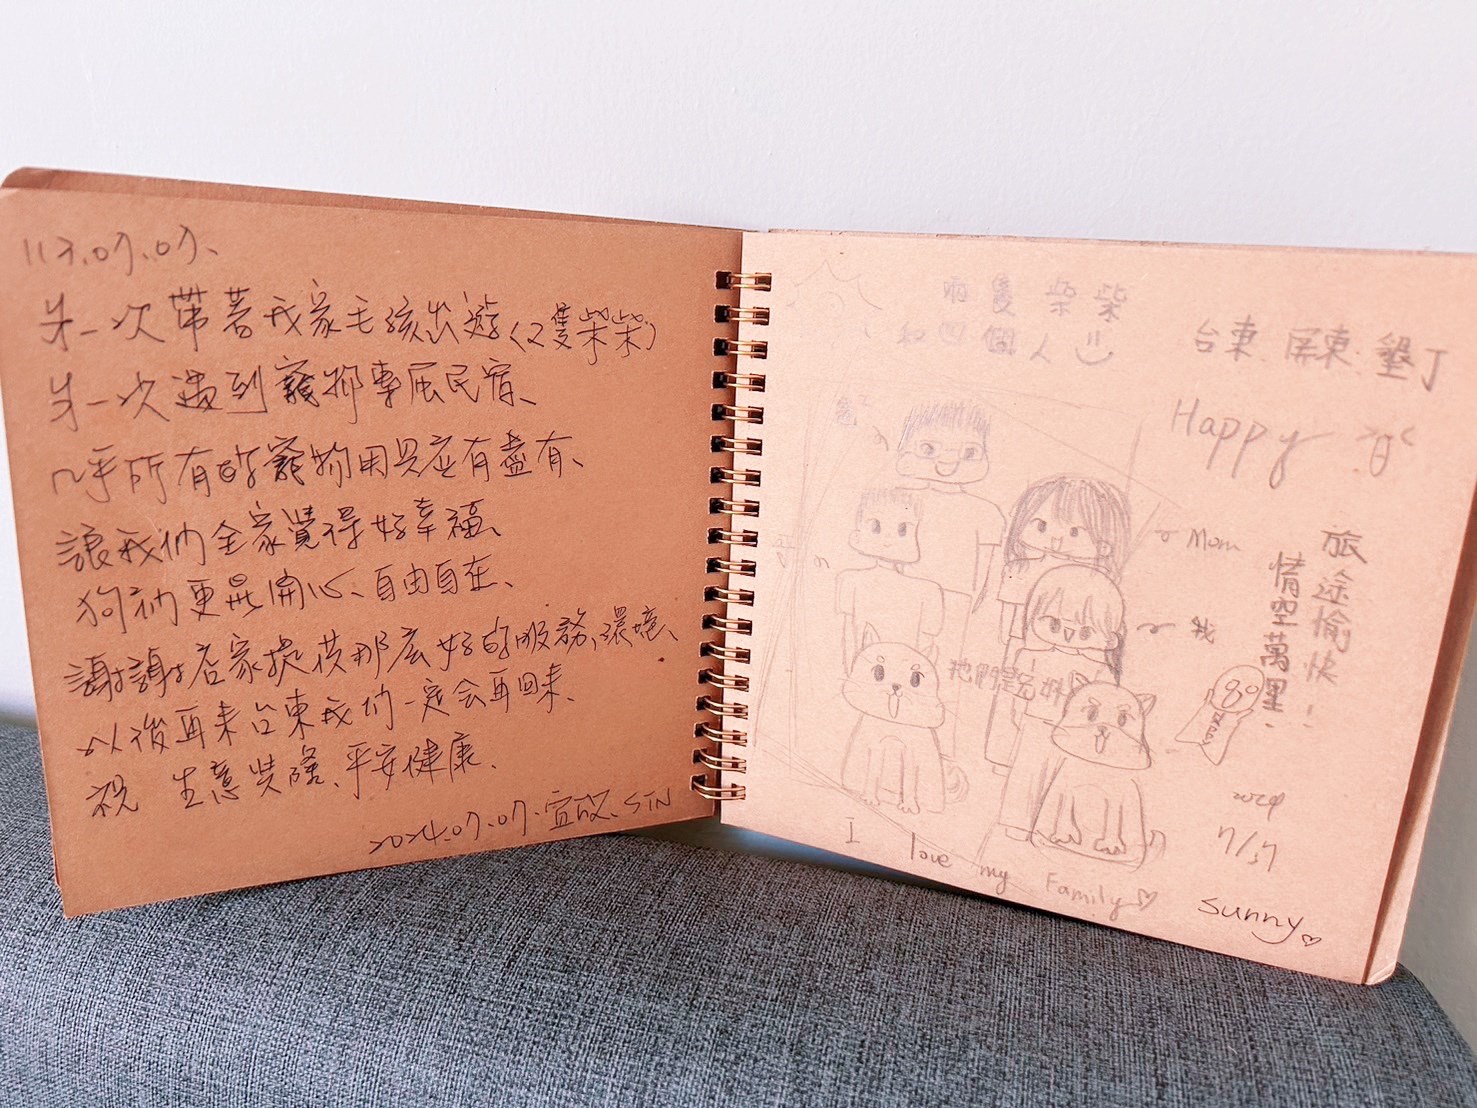 113.07.07、
第一次帶著我家毛孩出遊(2隻柴柴)
第一次遇到寵物專屬民宿、
几乎所有的寵物用具應有盡有、
讓我們全家覺得好幸福、
狗衲更是開心、自由自在、
謝謝店家提供那么好的服務、環境、
以後再來台東我們一定会再回來、
祝 生意興隆、平安健康、
2024.07.07.宜
兩隻柴柴
和四個人
台東.屏東.墾丁
Happy
Mom
我
他們是兄妹
旅途愉快!
情空萬里.
2024
7/7
I love my Family♡
sunny♡